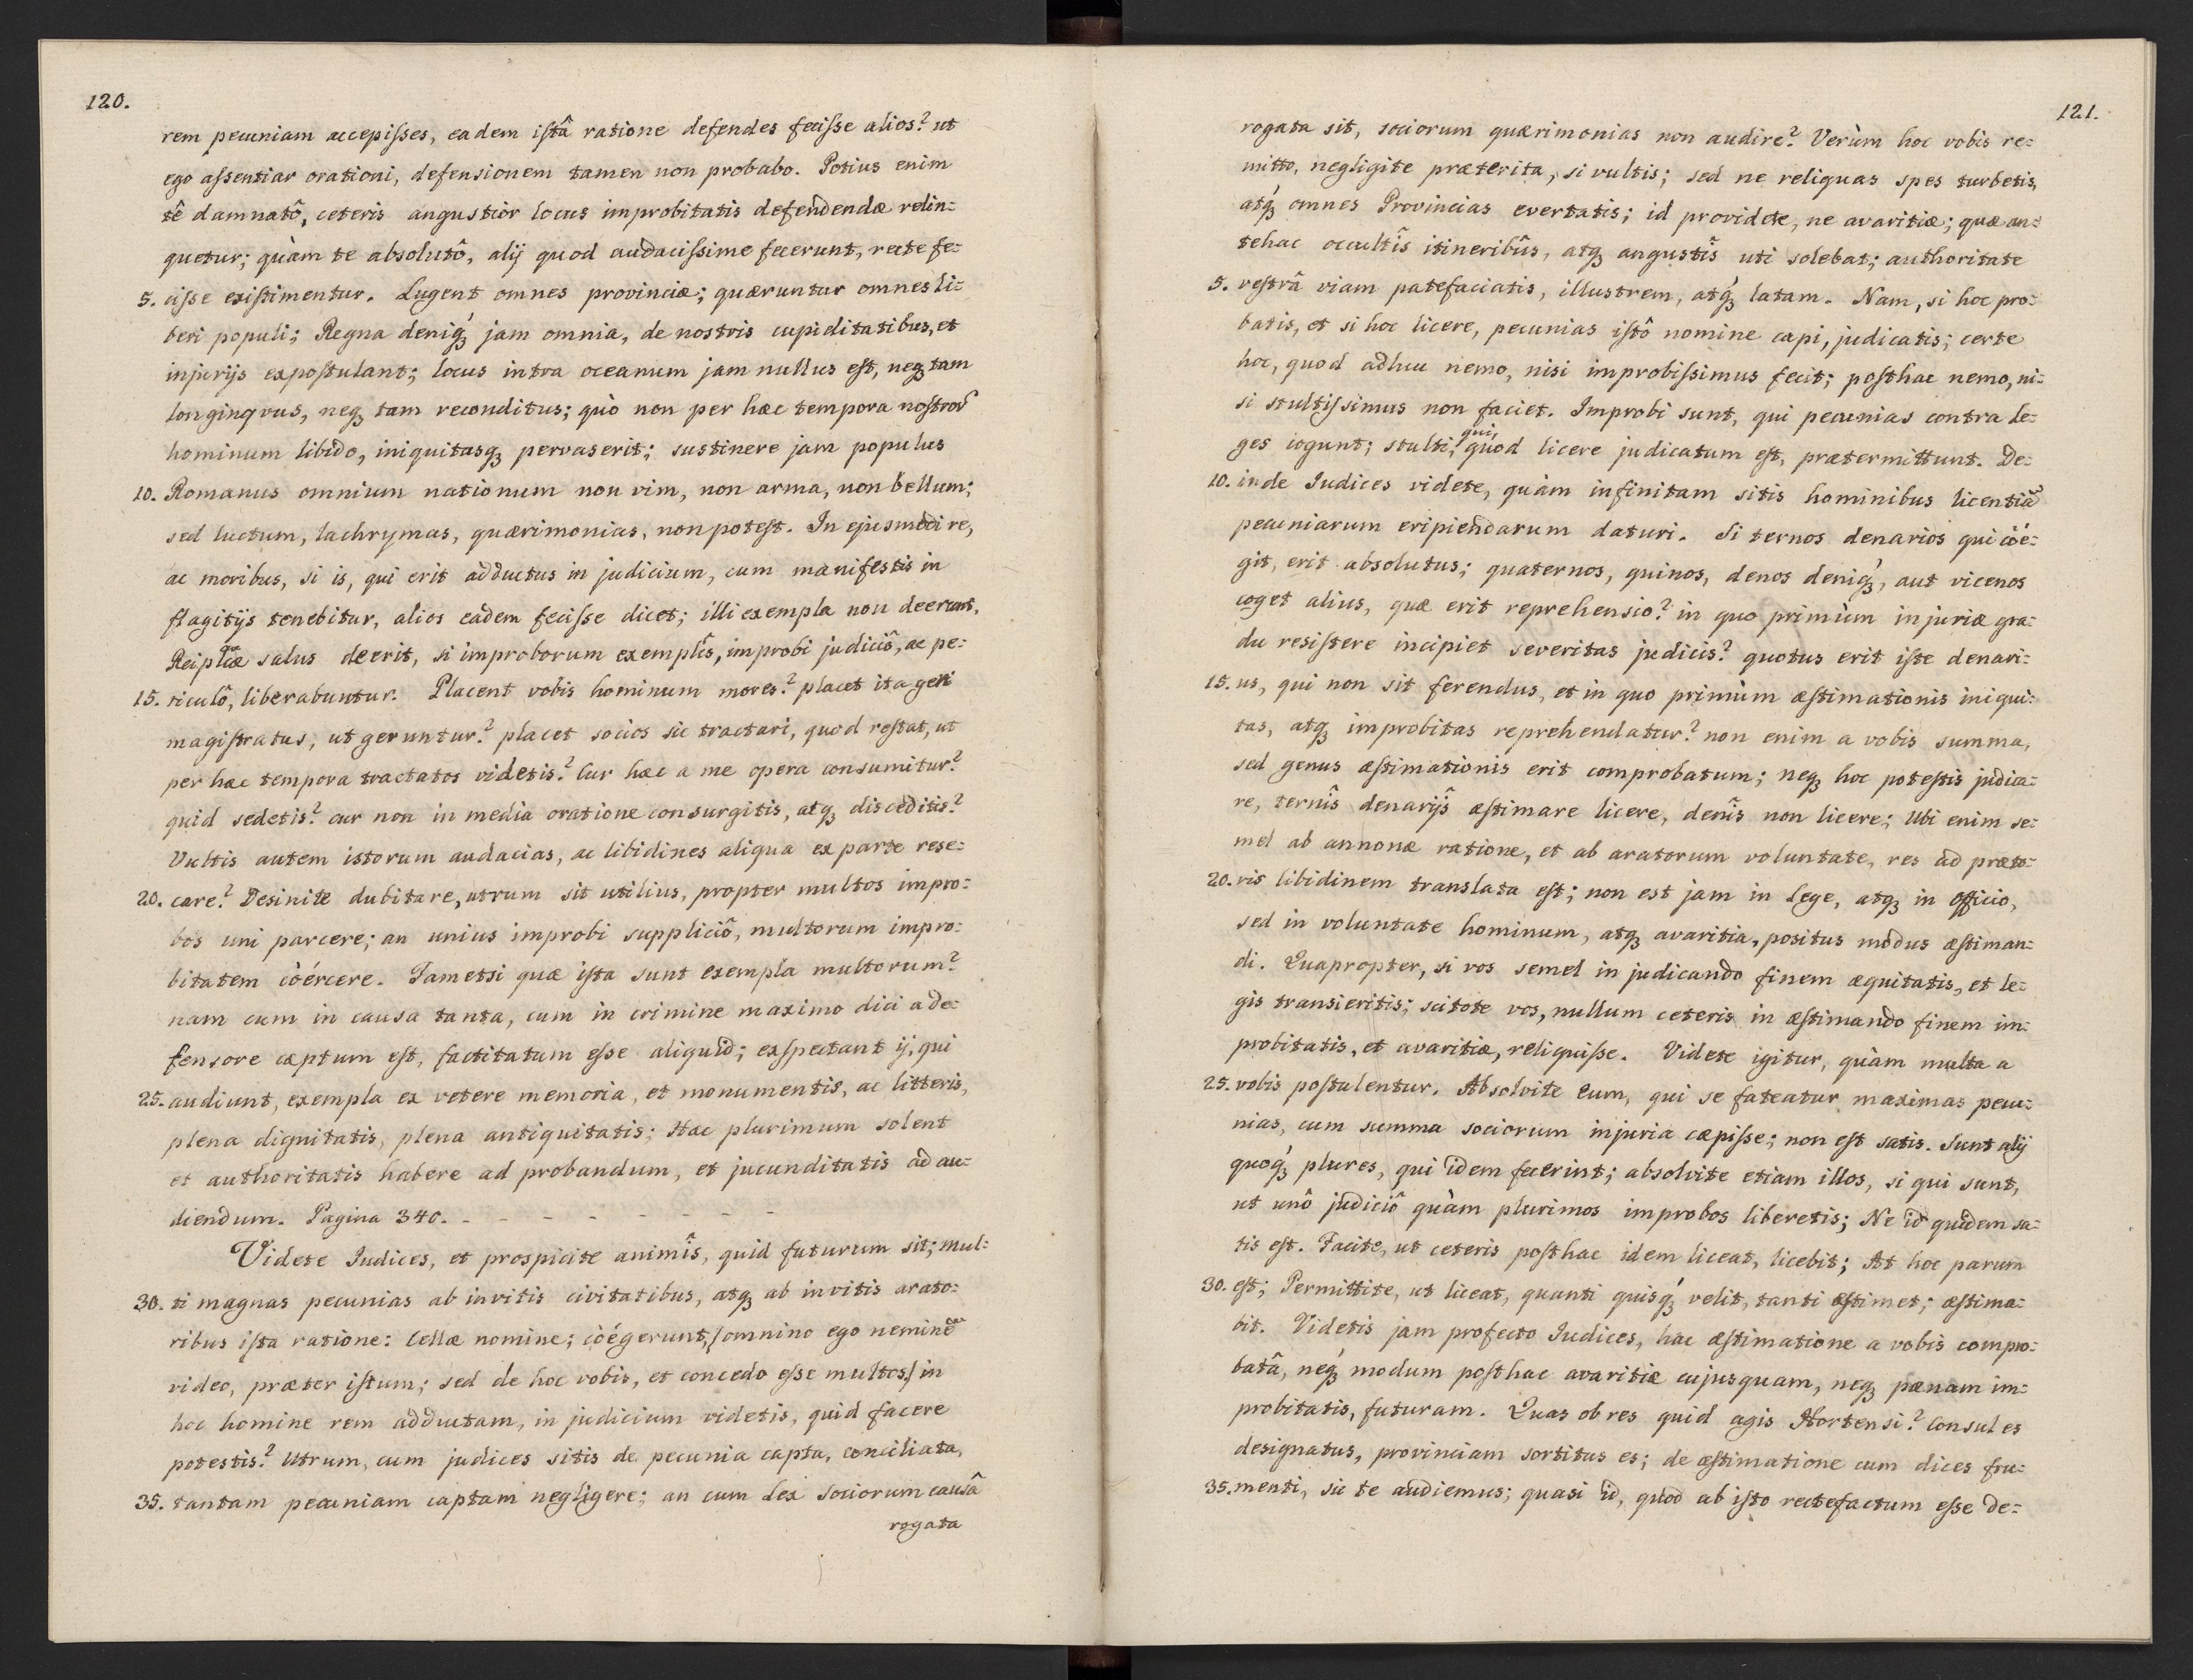 120.
rem pecuniam accepisses, eadem istâ ratione defendes fecisse alios? ut
ego assentiar orationi, defensionem tamen non probabo. Potius enim
tê damnatô, ceteris angustior locus improbitatis defendendæ relin=
quetur; quàm te absolutô, alij quod audacissime fecerunt, recte fe=
5. cisse existimentur. Lugent omnes provinciæ; quæruntur omnes li=
beri populi; Regna deniq́ȝ jam omnia, de nostris cupiditatibus, et
injurijs expostulant; locus intra oceanum jam nullus est, neqȝ tam
longinqvus, neqȝ tam reconditus; quò non per hæc tempora nostror̃
hominum libido, iniquitasqȝ pervaserit; sustinere jam populus
10. Romanus omnium nationum non vim, non arma, non bellum;
sed luctum, lachrymas, quærimonias, non potest. In ejusmodi re,
ac moribus, si is, qui erit adductus in judicium, cum manifestis in
flagitijs tenebitur, alios eadem fecisse dicet; illi exempla non deerunt,
Reiplicæ salus deerit, si improborum exemplîs, improbi judiciô, ac pe=
15. riculô, liberabuntur. Placent vobis hominum mores? placet ita geri
magistratus, ut geruntur? placet socios sic tractari, quod restat, ut
per hæc tempora tractatos videtis? Cur hæc a me opera consumitur?
quid sedetis? cur non in media oratione consurgitis, atqȝ disceditis?
Vultis autem istorum audacias, ac libidines aliqua ex parte rese=
20. care? Desinite dubitare, utrum sit utilius, propter multos impro=
bos uni parcere; an unius improbi suppliciô, multorum impro=
bitatem cöércere. Tametsi quæ ista sunt exempla multorum?
nam cum in causa tanta, cum in crimine maximo dici a de=
fensore cæptum est, factitatum esse aliquid; exspectant ij, qui
25. audiunt, exempla ex vetere memoria, et monumentis, ac litteris,
plena dignitatis, plena antiquitatis; Hæc plurimum solent
et authoritatis habere ad probandum, et jucunditatis ad au=
diendum. Pagina 340. - - - - - - - -
Videte Iudices, et prospicite animîs, quid futurum sit; mul=
30. ti magnas pecunias ab invitis civitatibus, atqȝ ab invitis arato=
ribus ista ratione: Cellæ nomine; cöégerunt, /omnino ego neminẽ
video, præter istum; sed de hoc vobis, et concedo esse multos/ in
hoc homine rem adductam, in judicium videtis, quid facere
potestis? Utrum, cum judices sitis de pecunia capta, conciliata,
35. tantam pecuniam captam negligere; an cum Lex sociorum causâ
rogata
121.
rogata sit, sociorum quærimonias non audire? Verùm hoc vobis re=
mitto, negligite præterita, si vultis; sed ne reliquas spes turbetis,
atq́ȝ omnes Provincias evertatis; id providete, ne avaritiæ; quæ an=
tehac occultîs itineribûs, atqȝ angustîs uti solebat; authoritate
5. vestrâ viam patefaciatis, illustrem, atq́ȝ latam. Nam, si hoc pro=
batis, et si hoc licere, pecunias istô nomine capi, judicatis; certe
hoc, quod adhuc nemo, nisi improbissimus fecit; posthac nemo, ni=
si stultissimus non faciet. Improbi sunt, qui pecunias contra le=
ges cogunt; stulti, qui, quod licere judicatum est, prætermittunt. De=
10. inde Iudices videte, quàm infinitam sitis hominibus licentiã
pecuniarum eripiendarum daturi. Si ternos denarios qui cöé=
git, erit absolutus; quaternos, quinos, denos deniq́ȝ, aut vicenos
coget alius, quæ erit reprehensio? in quo primùm injuriæ gra=
du resistere incipiet severitas judicis? quotus erit iste denari=
15. us, qui non sit ferendus, et in quo primùm æstimationis iniqui=
tas, atqȝ improbitas reprehendatur? non enim a vobis summa,
sed genus æstimationis erit comprobatum; neqȝ hoc potestis judica=
re, ternîs denarijs̃ æstimare licere, denîs non licere; Ubi enim se=
mel ab annonæ ratione, et ab aratorum voluntate, res ad præto=
20. ris libidinem translata est; non est jam in Lege, atqȝ in officio,
sed in voluntate hominum, atqȝ avaritia, positus modus æstiman=
di. Quapropter, si vos semel in judicando finem æquitatis, et le=
gis transieritis; scitote vos, nullum ceteris in æstimando finem im=
probitatis, et avaritiæ, reliquisse. Videte igitur, quàm multa a
25. vobis postulentur. Absolvite eum, qui se fateatur maximas pecu=
nias, cum summa sociorum injuria cæpisse; non est satis. Sunt alij
quoq́ȝ plures, qui idem fecerint; absolvite etiam illos, si qui sunt,
ut unô judiciô quàm plurimos improbos liberetis; Ne id quidem sa=
tis est. Facite, ut ceteris posthac idem liceat, licebit; At hoc parum
30. est; Permittite, ut liceat, quanti quisq́ȝ velit, tanti æstimet; æstima=
bit. Videtis jam profecto Iudices, hac æstimatione a vobis compro=
batâ, neq́ȝ modum posthac avaritiæ cujusquam, neqȝ pænam im=
probitatis, futuram. Quas ob res quid agis Hortensi? Consul es
designatus, provinciam sortitus es; de æstimatione cum dices fru=
35. menti, sic te audiemus; quasi id, quod ab isto recte factum esse de=